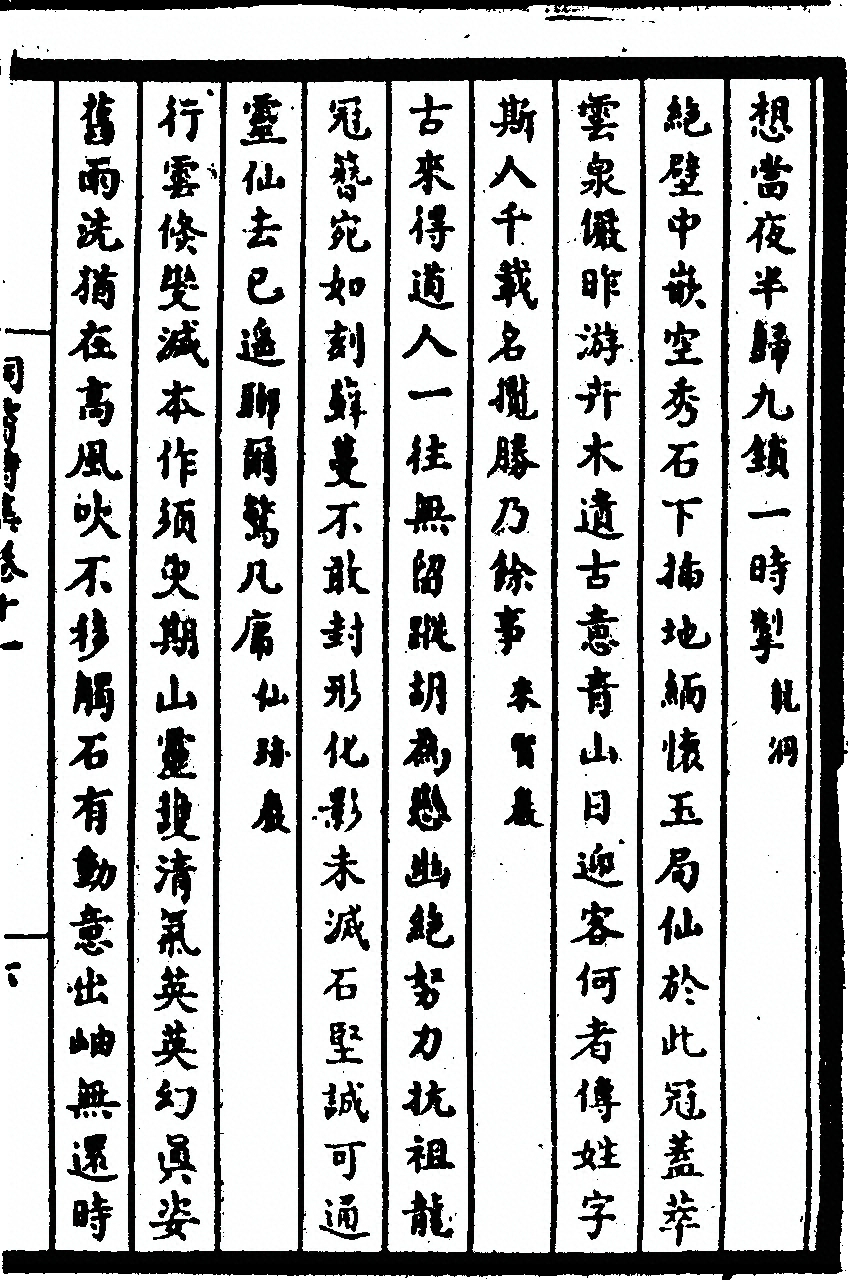 想當夜半歸九鎖一時掣龍洞
絶壁中嵌空秀石下插地緬懷玉局仙於此冠蓋萃
雲泉儼昨游卉木遺古意青山日迎客何者傳姓字
斯人千載名攬勝乃餘事來賢巖
古來得道人一往無留蹤胡為戀幽絶努力抗祖龍
冠簪宛如刻蘚蔓不敢封形化影未滅石堅誠可通
靈仙去已遥聊爾驚凡庸仙跡巖
行雲倏變滅本作須臾期山靈謾清氣英英幻眞姿
舊雨洗猶在高風吹不移觸石有動意出岫無還時
洞霄詩集卷十一